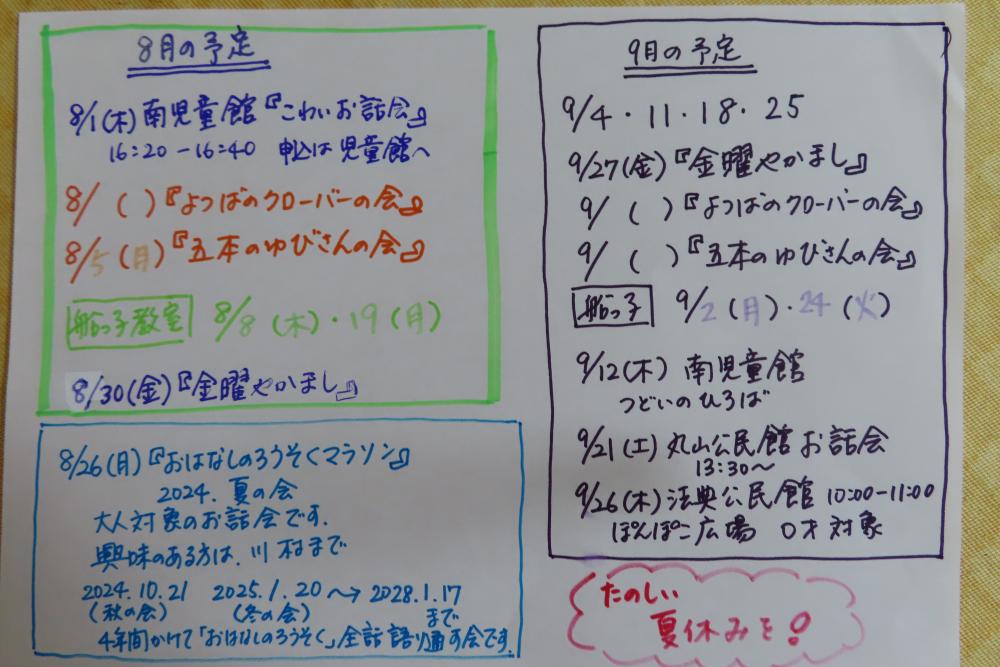 8月の予定
8/1(木)南児童館『こわいお話会』
16:20-16:40 申込は児童館へ
8/ ( )『よつばのクローバーの会』
8/5(月)『五本のゆびさんの会』
船っ子教室 8/8(木)・19(月)
8/30(金)『金曜やかまし』
8/26(月)『おはなしのろうそくマラソン』
2024.夏の会
大人対象のお話会です.
興味のある方は.川村まで
2024.10.21 2025.1.20〜→2028.1.17
(秋の会) (冬の会) まで
4年間かけて「おはなしのろうそく」全話語り通す会です.
9月の予定
9/4・11・18・25
9/27(金)『金曜やかまし』
9/ ( )『よつばのクローバーの会』
9/ ( )『五本のゆびさんの会』
船っ子 9/2(月)・24(火)
9/12(木) 南児童館
つどいのひろば
9/21(土)丸山公民館お話会
13:30〜
9/26(木)法典公民館 10:00-11:00
ぽんぽこ広場 0才対象
たのしい
夏休みを!